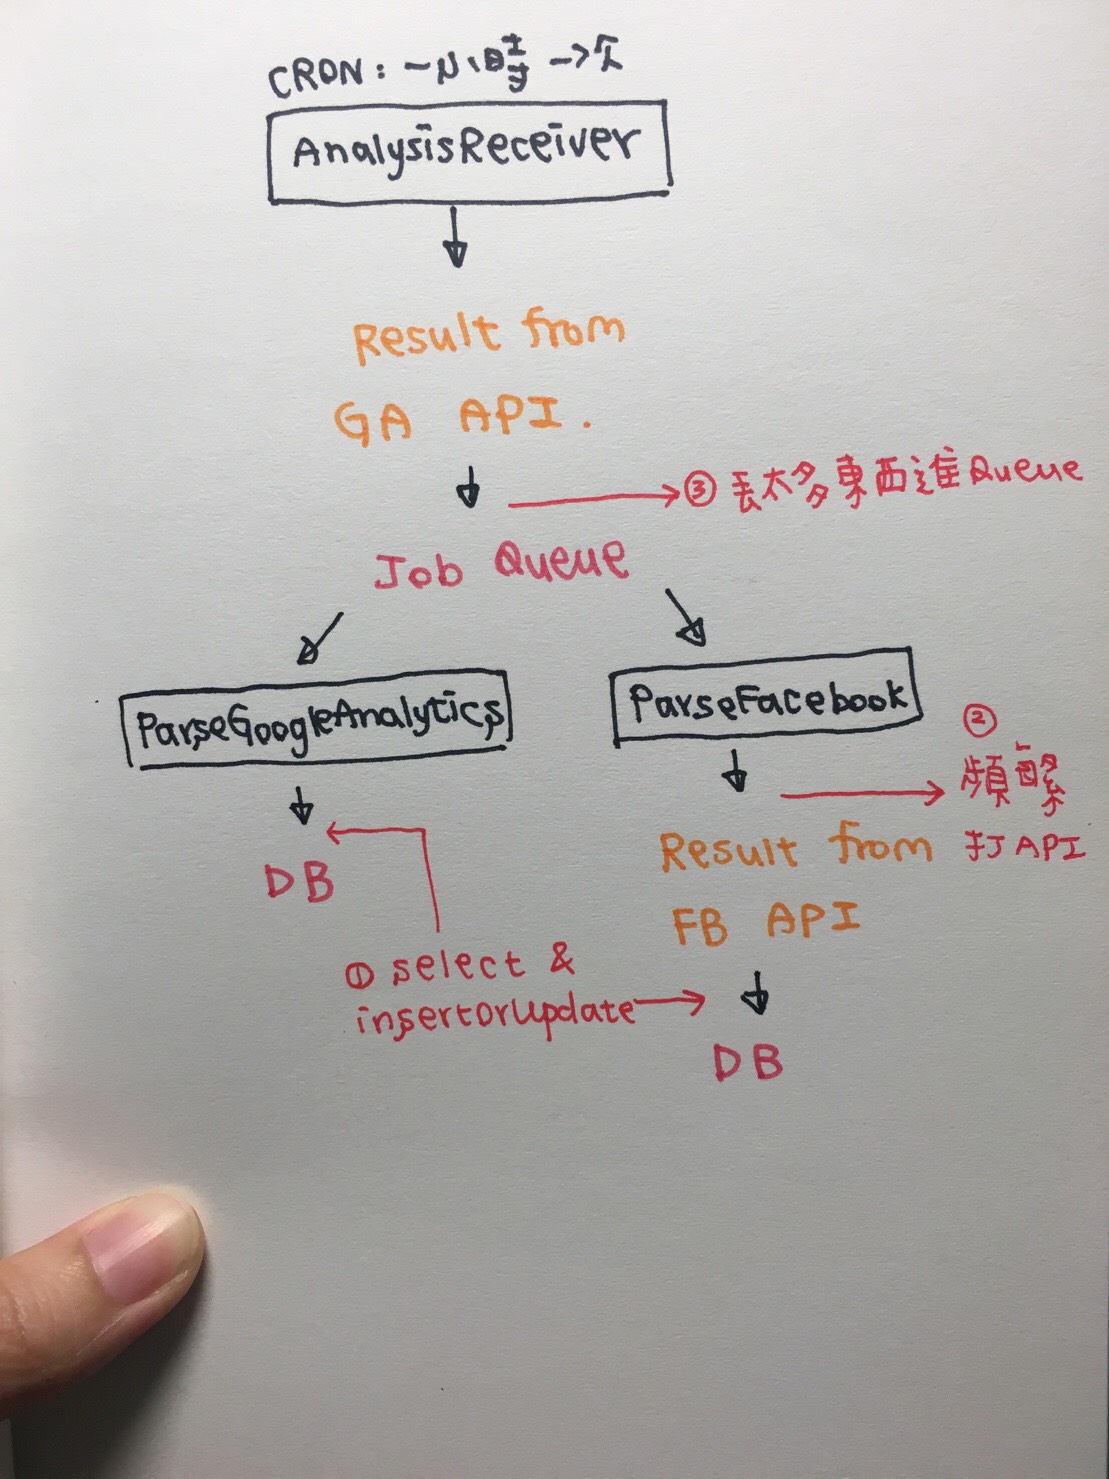 CRON: 一小時一次
AnalysisReceiver
Result from
GA API.
③ 丟太多東西進Queue
Job Queue
ParseGoogleAnalytics
ParseFacebook
②
頻繁
打API
DB
Result from
FB API
① select &
insertorUpdate
DB